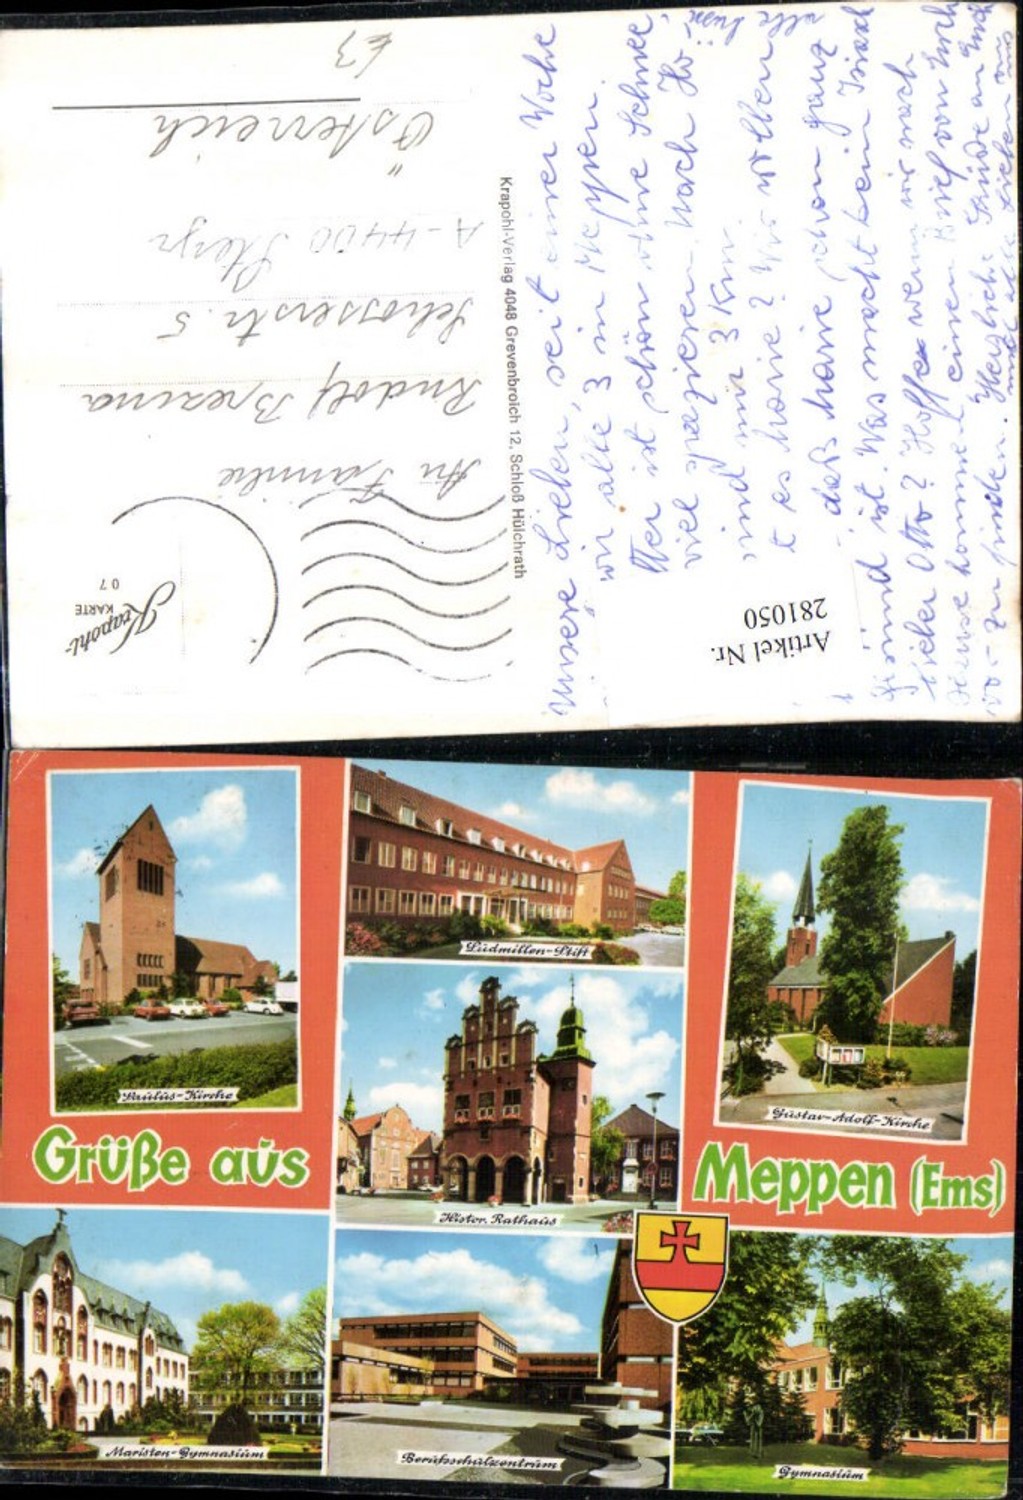 Unsere Lieben, seit einer Woche
wir alle 3 in Meppen.
Hier ist schön ohne Schnee
viel spazieren. Nach Ho
sind wir 3 Km
t es Marie? Wir wollen
daß Marie schon ganz
ist. Was macht beim
lieber Otto? Hoffe wenn wir nach
Hause kommen einen Brief von Euch
vor zu finden. Herzliche Grüße an Euch
alle
Krapohl-Verlag 4048 Grevenbroich 12, Schloß Hülchrath
Krapohl-
KARTE
07
An Familie
Rudolf Brezina
Schosserstr. 5
A-4400 Steyr
Österreich
€3
Artikel Nr.
281050
Paulus-Kirche
Ludmillen-Stift
Gustav-Adolf-Kirche
Grüße aus
Histor. Rathaus
Meppen (Ems)
Maristen-Gymnasium
Berufsschulzentrum
Gymnasium